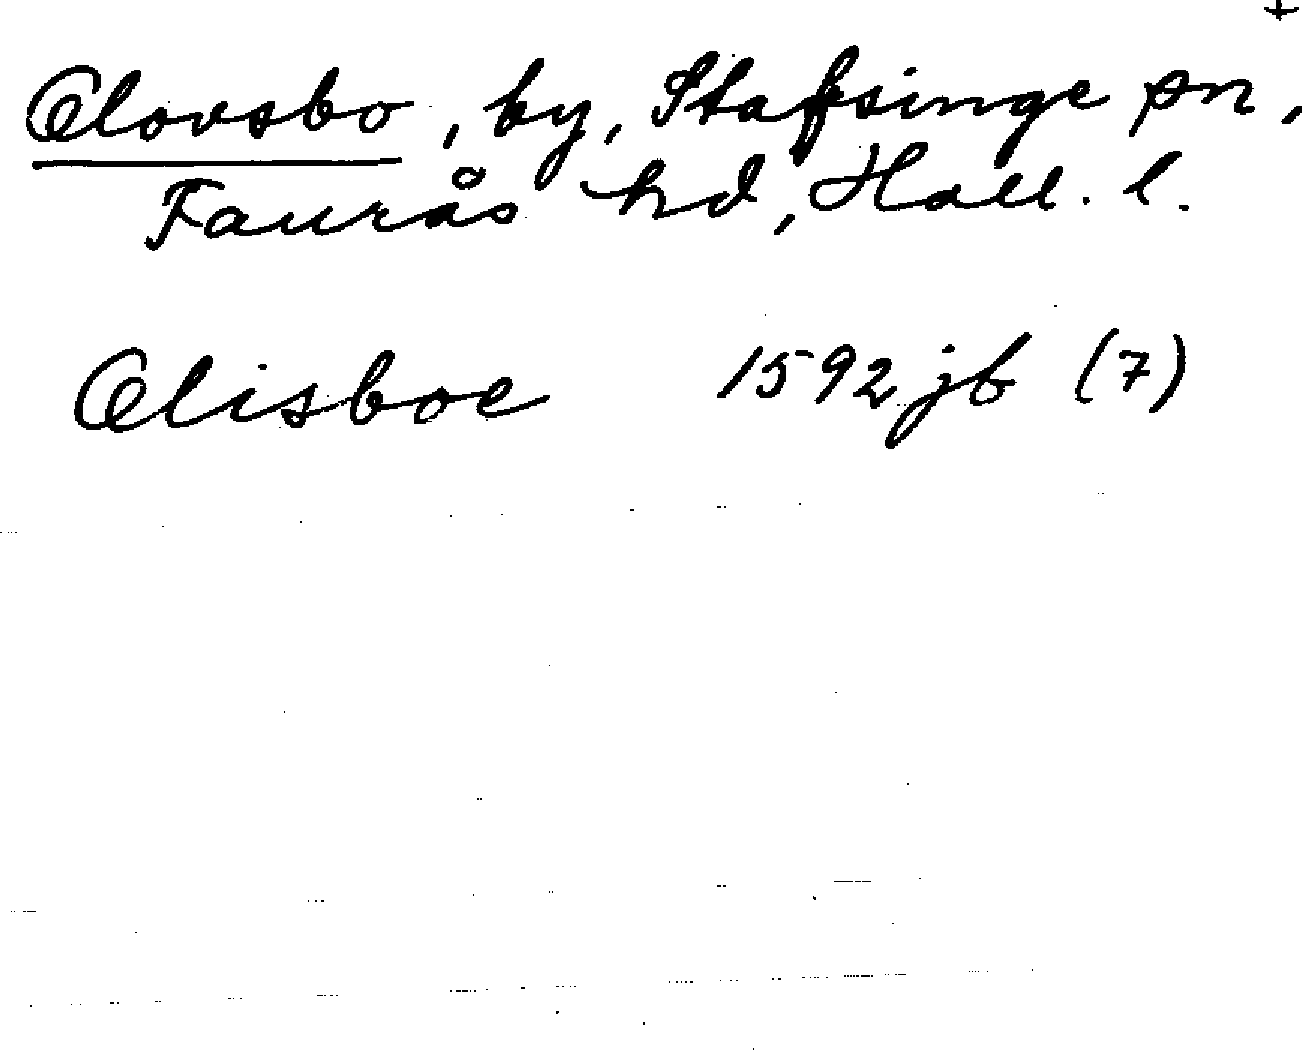 Olovsbo, by, Stafsinge sn,
Faurås hd, Hall. l.
Olisboe 1592 jb (7)